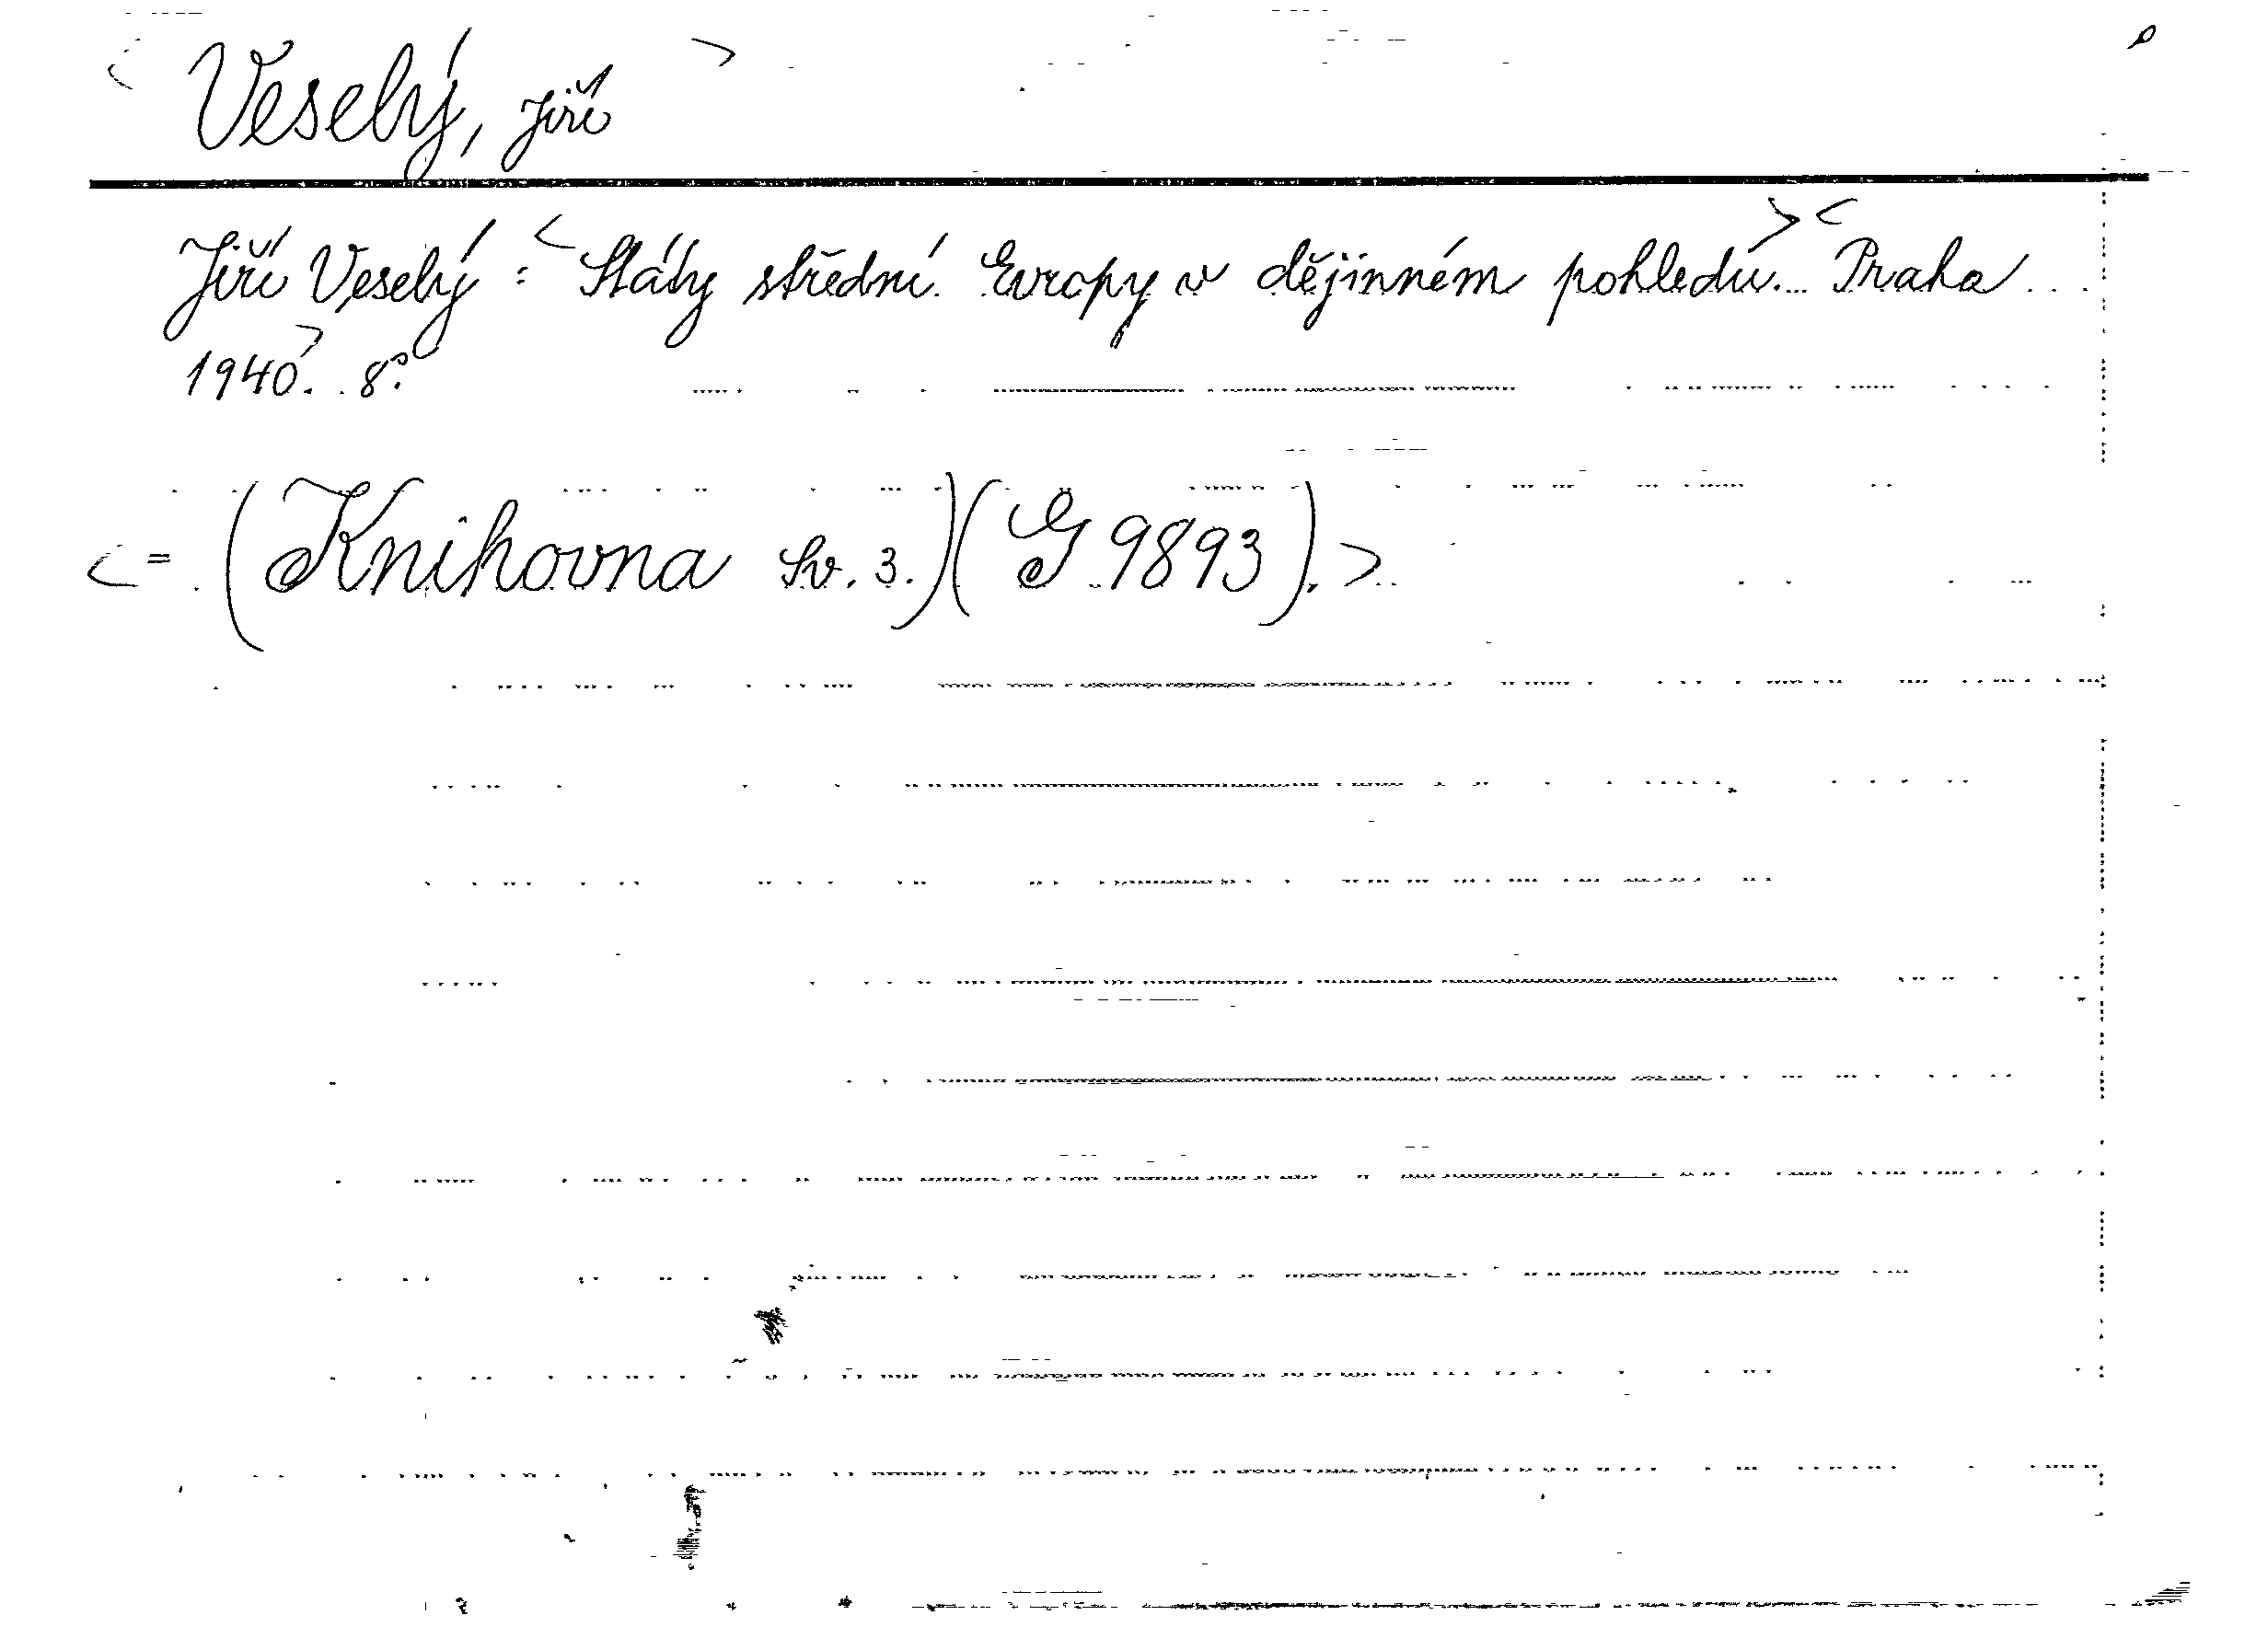 < Veselý, Jiří >
Jiří Veselý: < Státy střední Evropy v dějinném pohledu. > < Praha
1940 >. 8°.
< = (Knihovna Sv. 3.) (G 9893). >